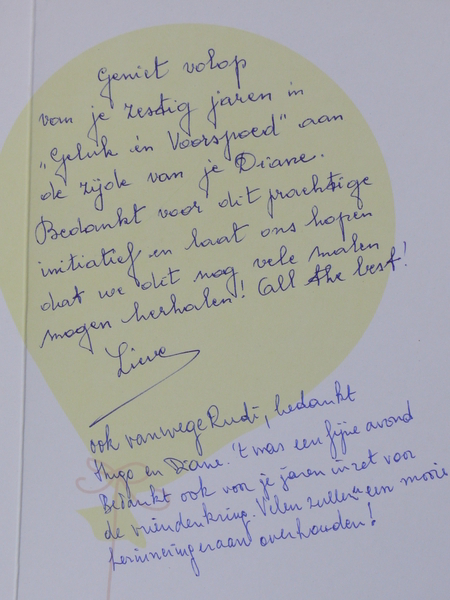 Geniet volop
van je zestig jaren in
"Geluk en Voorspoed" aan
de zijde van je Diane.
Bedankt voor dit prachtige
initiatief en laat ons hopen
dat we dit nog vele malen
mogen herhalen! All the best!
Lieve
ook vanwege Rudi, bedankt
Hugo en Diane. 't was een fijne avond
Bedankt ook voor je jaren inzet voor
de vriendenkring. Velen zullen een mooie
herinnering eraan overhouden!